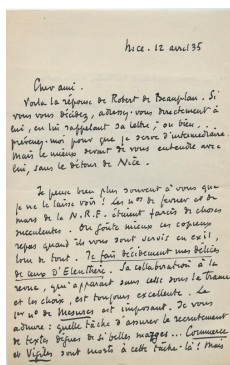 Nice. 12 avril 35
Cher ami.
Voilà la réponse de Robert de Beauplan. Si
vous vous décidez, adressez-vous directement à
lui, en lui rappelant sa lettre, ou bien...
prévenez-moi pour que je serve d'intermédiaire.
Mais le mieux serait de vous entendre avec
lui, sans le détour de Nice.
Je pense bien plus souvent à vous que
je ne le laisse voir ! Les nos de février et de
mars de la N.R.F. étaient farcis de choses
succulentes. On goûte mieux ces copieux
repas quand ils vous sont servis en exil,
loin de tout. Je fais décidément mes délices
de ceux d'Eleuthère. Sa collaboration à la
revue, qui apparaît sans cesse dans la trame
et les choix, est toujours excellente. Le
1er no de Mesures est imposant. Je vous
admire : quelle tâche d'assurer le recrutement
de textes dignes de si belles marges... Commerce
et Vigiles sont morts à cette tâche-là ! Mais